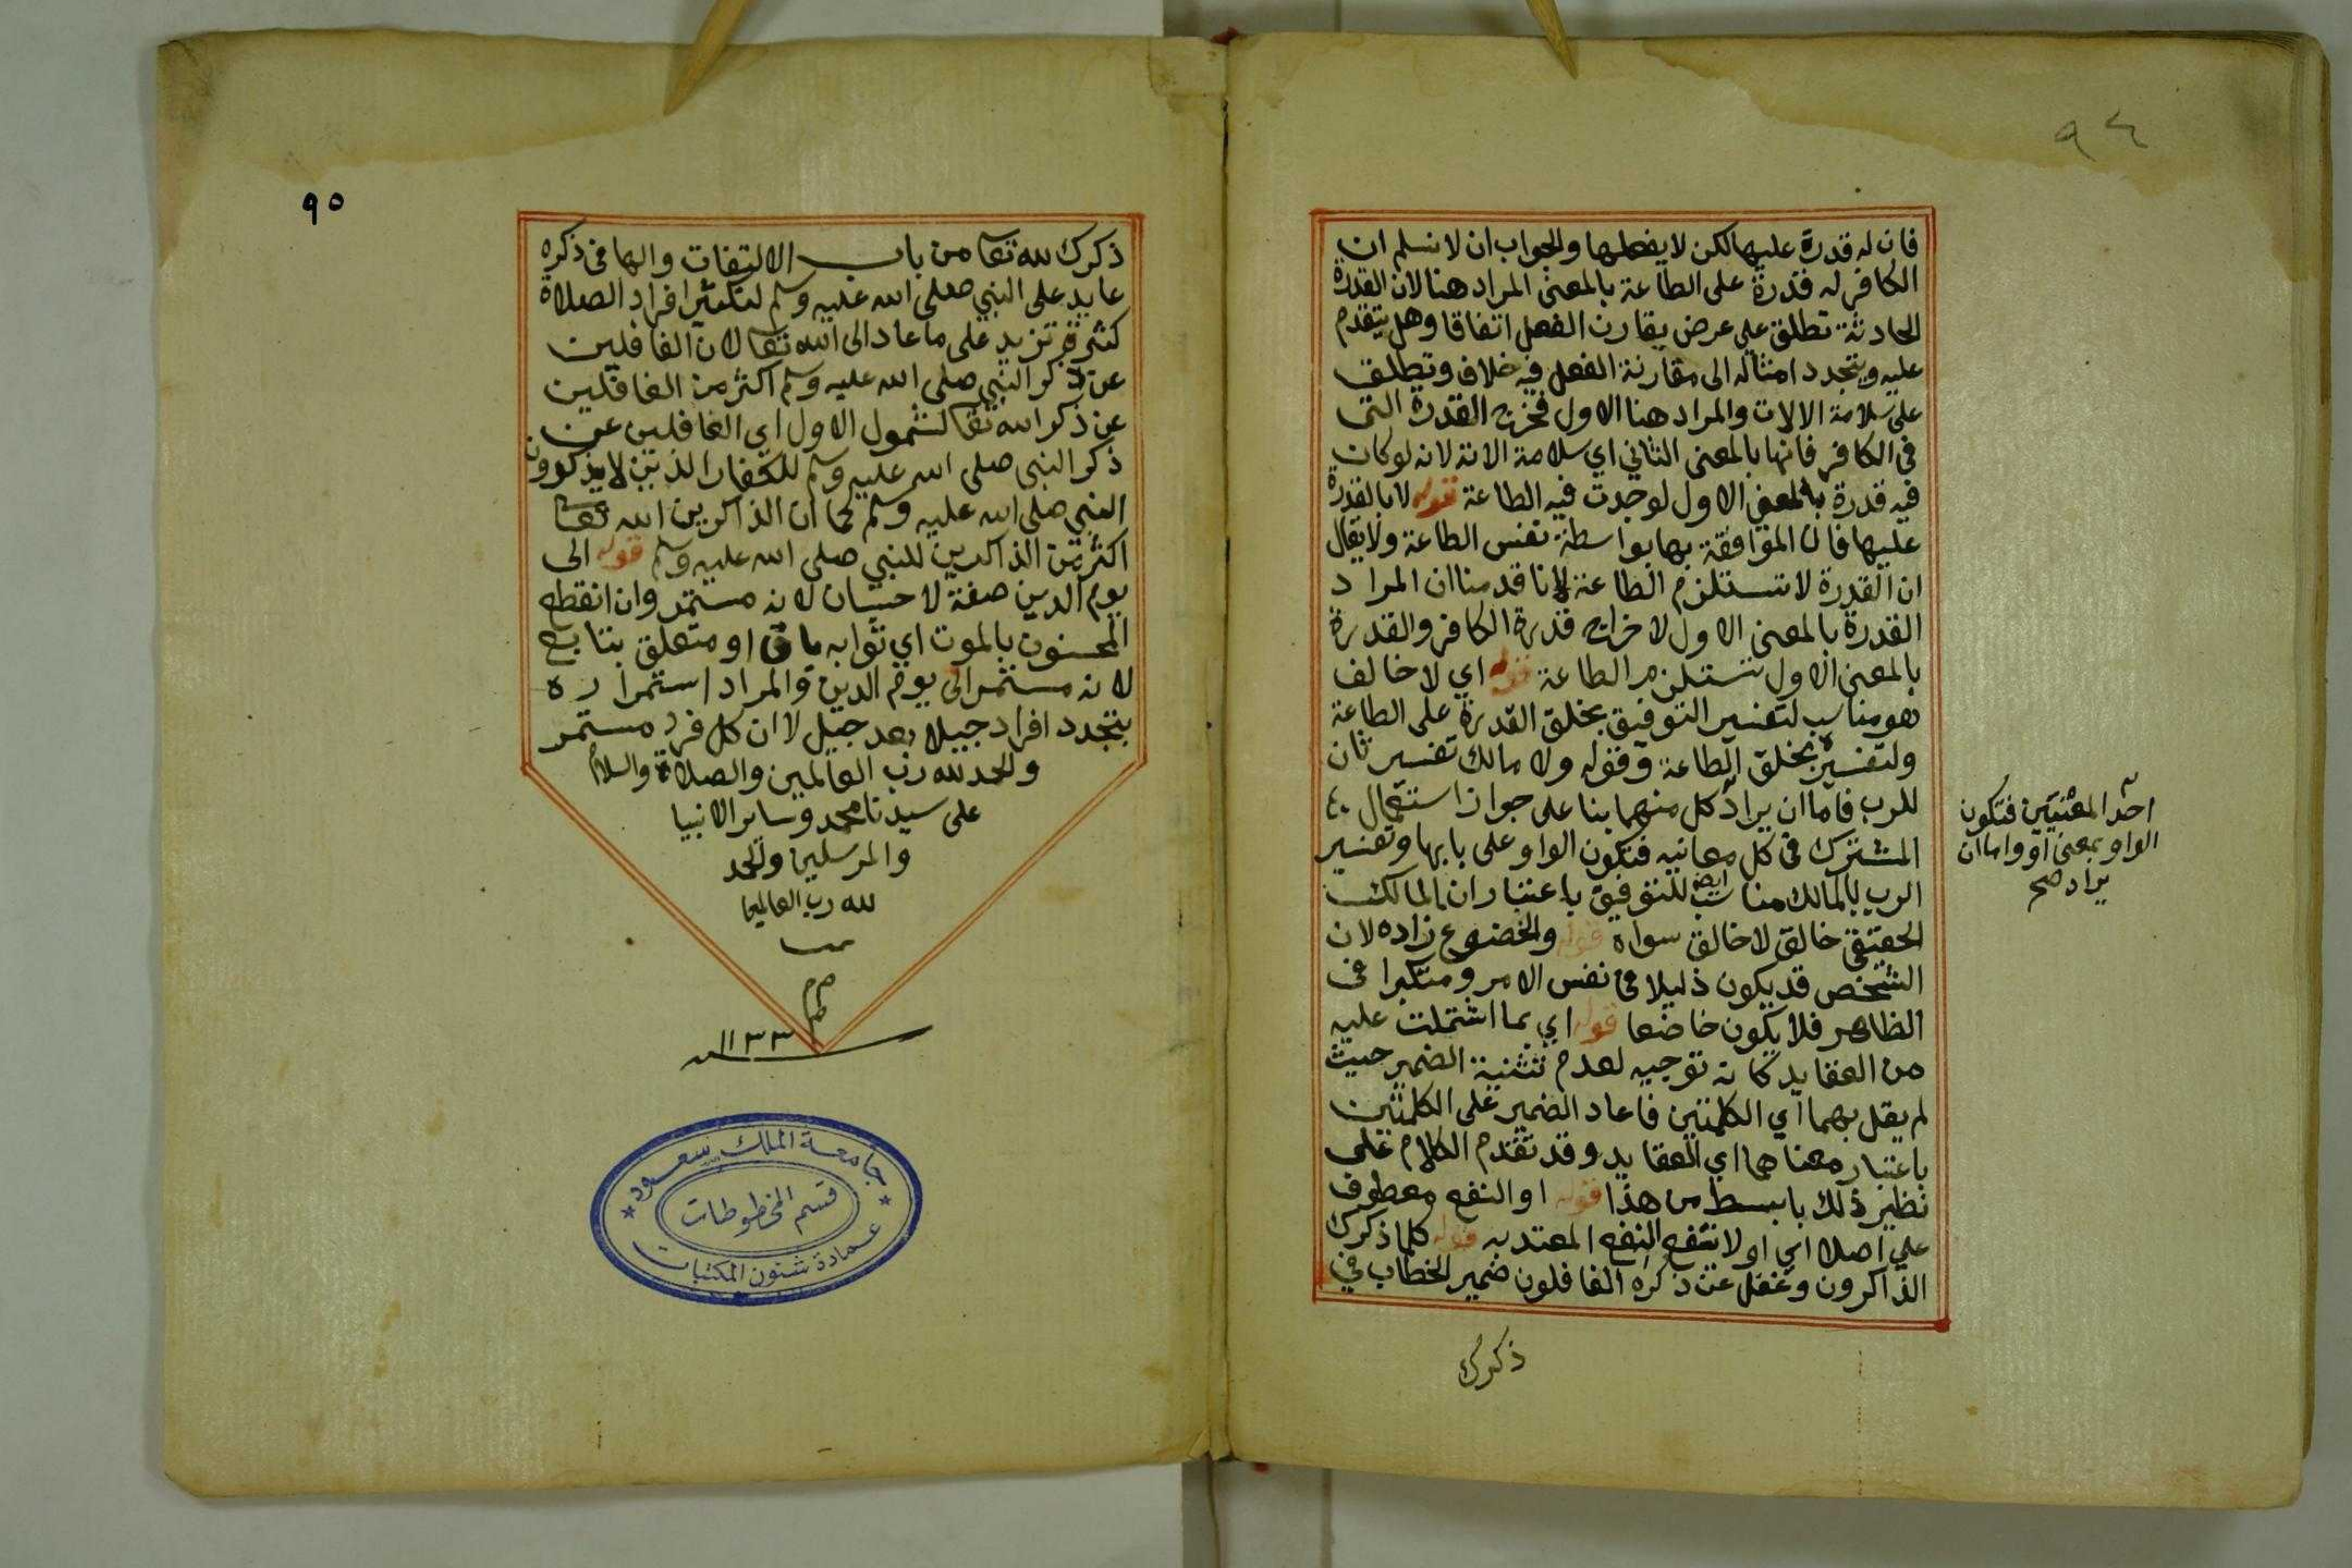 ٩٤
فان له قدرة عليها لكن لا يفعلها والجواب ان لا نسلم ان
الكافر له قدرة على الطاعة بالمعنى المراد هنا لان القدرة
الحادثة تطلق على عرض يقارن الفعل اتفاقا وهل يتقدم
عليه ويتجدد امثاله الى مقارنة الفعل فيه خلاف وتطلق
على سلامة الالات والمراد هنا الاول فخرج القدرة التى
في الكافر فانها بالمعنى الثاني اي سلامة الالة لانه لو كان
فيه قدرة بالمعنى الاول لوجدت فيه الطاعة قوله لا بالقدرة
عليها فان الموافقة بها بواسطة نفس الطاعة ولا يقال
ان القدرة لا تستلزم الطاعة لانا قدمنا ان المراد
القدرة بالمعنى الاول لاخراج قدرة الكافر والقدرة
بالمعنى الاول تستلزم الطاعة قوله اي لا خالف
هو مناسب لتفسير التوفيق بخلق القدرة على الطاعة
ولتفسيره بخلق الطاعة وقوله ولا مالك تفسير ثان
للرب فاما ان يراد كل منهما بنا على جواز استعمال
المشترك في كل معانيه فتكون الواو على بابها وتفسير
الرب بالمالك مناسب ايضا للتوفيق باعتبار ان المالك
الحقيقى خالق لا خالق سواه قوله والخضوع زاده لان
الشخص قد يكون ذليلا في نفس الامر ومتكبرا في
الظاهر فلا يكون خاضعا قوله اي بما اشتملت عليه
من العقايد كانه توجيه لعدم تثنية الضمير حيث
لم يقل بهما اي الكلمتين فاعاد الضمير على الكلمتين
باعتبار معناهما اي العقايد وقد تقدم الكلام على
نظير ذلك بابسط من هذا قوله او النفع معطوف
على اصلا اي او لا تنفع النفع المعتد به قوله كلما ذكرك
الذاكرون وغفل عن ذكره الغافلون ضمير الخطاب في
ذكرك
احد المعنيين فتكون
الواو بمعنى او واما ان
يراد صح
٩٥
ذكرك لله تعا من باب الالتفات والها في ذكره
عايد على النبي صلى الله عليه وسلم لتكثير افراد الصلاة
كثرة تزيد على ما عاد الى الله تعا لان الغافلين
عن ذكر النبي صلى الله عليه وسلم اكثر من الغافلين
عن ذكر الله تعا لشمول الاول اي الغافلين عن
ذكر النبي صلى الله عليه وسلم للكفار الذين لا يذكرون
النبي صلى الله عليه وسلم كما ان الذاكرين الله تعا
اكثر من الذاكرين للنبي صلى الله عليه وسلم قوله الى
يوم الدين صفة لاحسان لانه مستمر وان انقطع
المحسنون بالموت اي ثوابه باق او متعلق بتابع
لانه مستمر الى يوم الدين والمراد استمراره
بتجدد افراد جيلا بعد جيل لا ان كل فرد مستمر
والحمد لله رب العالمين والصلاة والسلام
على سيدنا محمد وساير الانبيا
والمرسلين والحمد
لله رب العالمين
١١٣٣
جامعة الملك سعود
قسم المخطوطات
عمادة شئون المكتبات